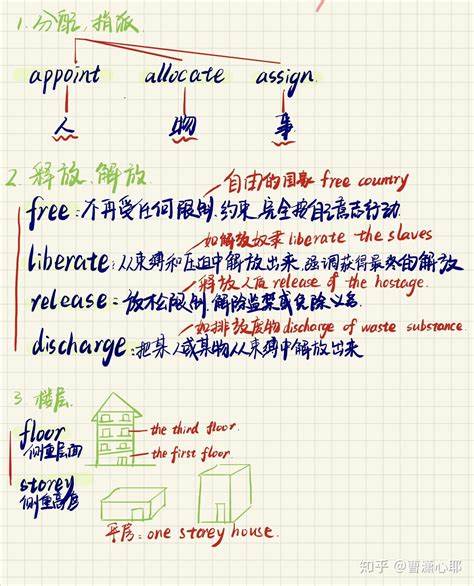 1. 分配, 指派
appoint allocate assign.
人 物 事
2. 释放、解放
自由的国家 free country
free: 不再受任何限制、约束,完全按自己意志行动.
如解放奴隶 liberate the slaves
liberate: 从束缚和压迫中解放出来,强调获得最终的解放
释放人质 release of the hostage.
release: 放松限制,解除监禁或免除义务.
如排放废物 discharge of waste substance.
discharge: 把某人或某物从束缚中解放出来
3. 楼层
floor
侧重层面
the third floor.
the first floor
storey
侧重高度
平房: one storey house.
知乎 @曹灏心耶